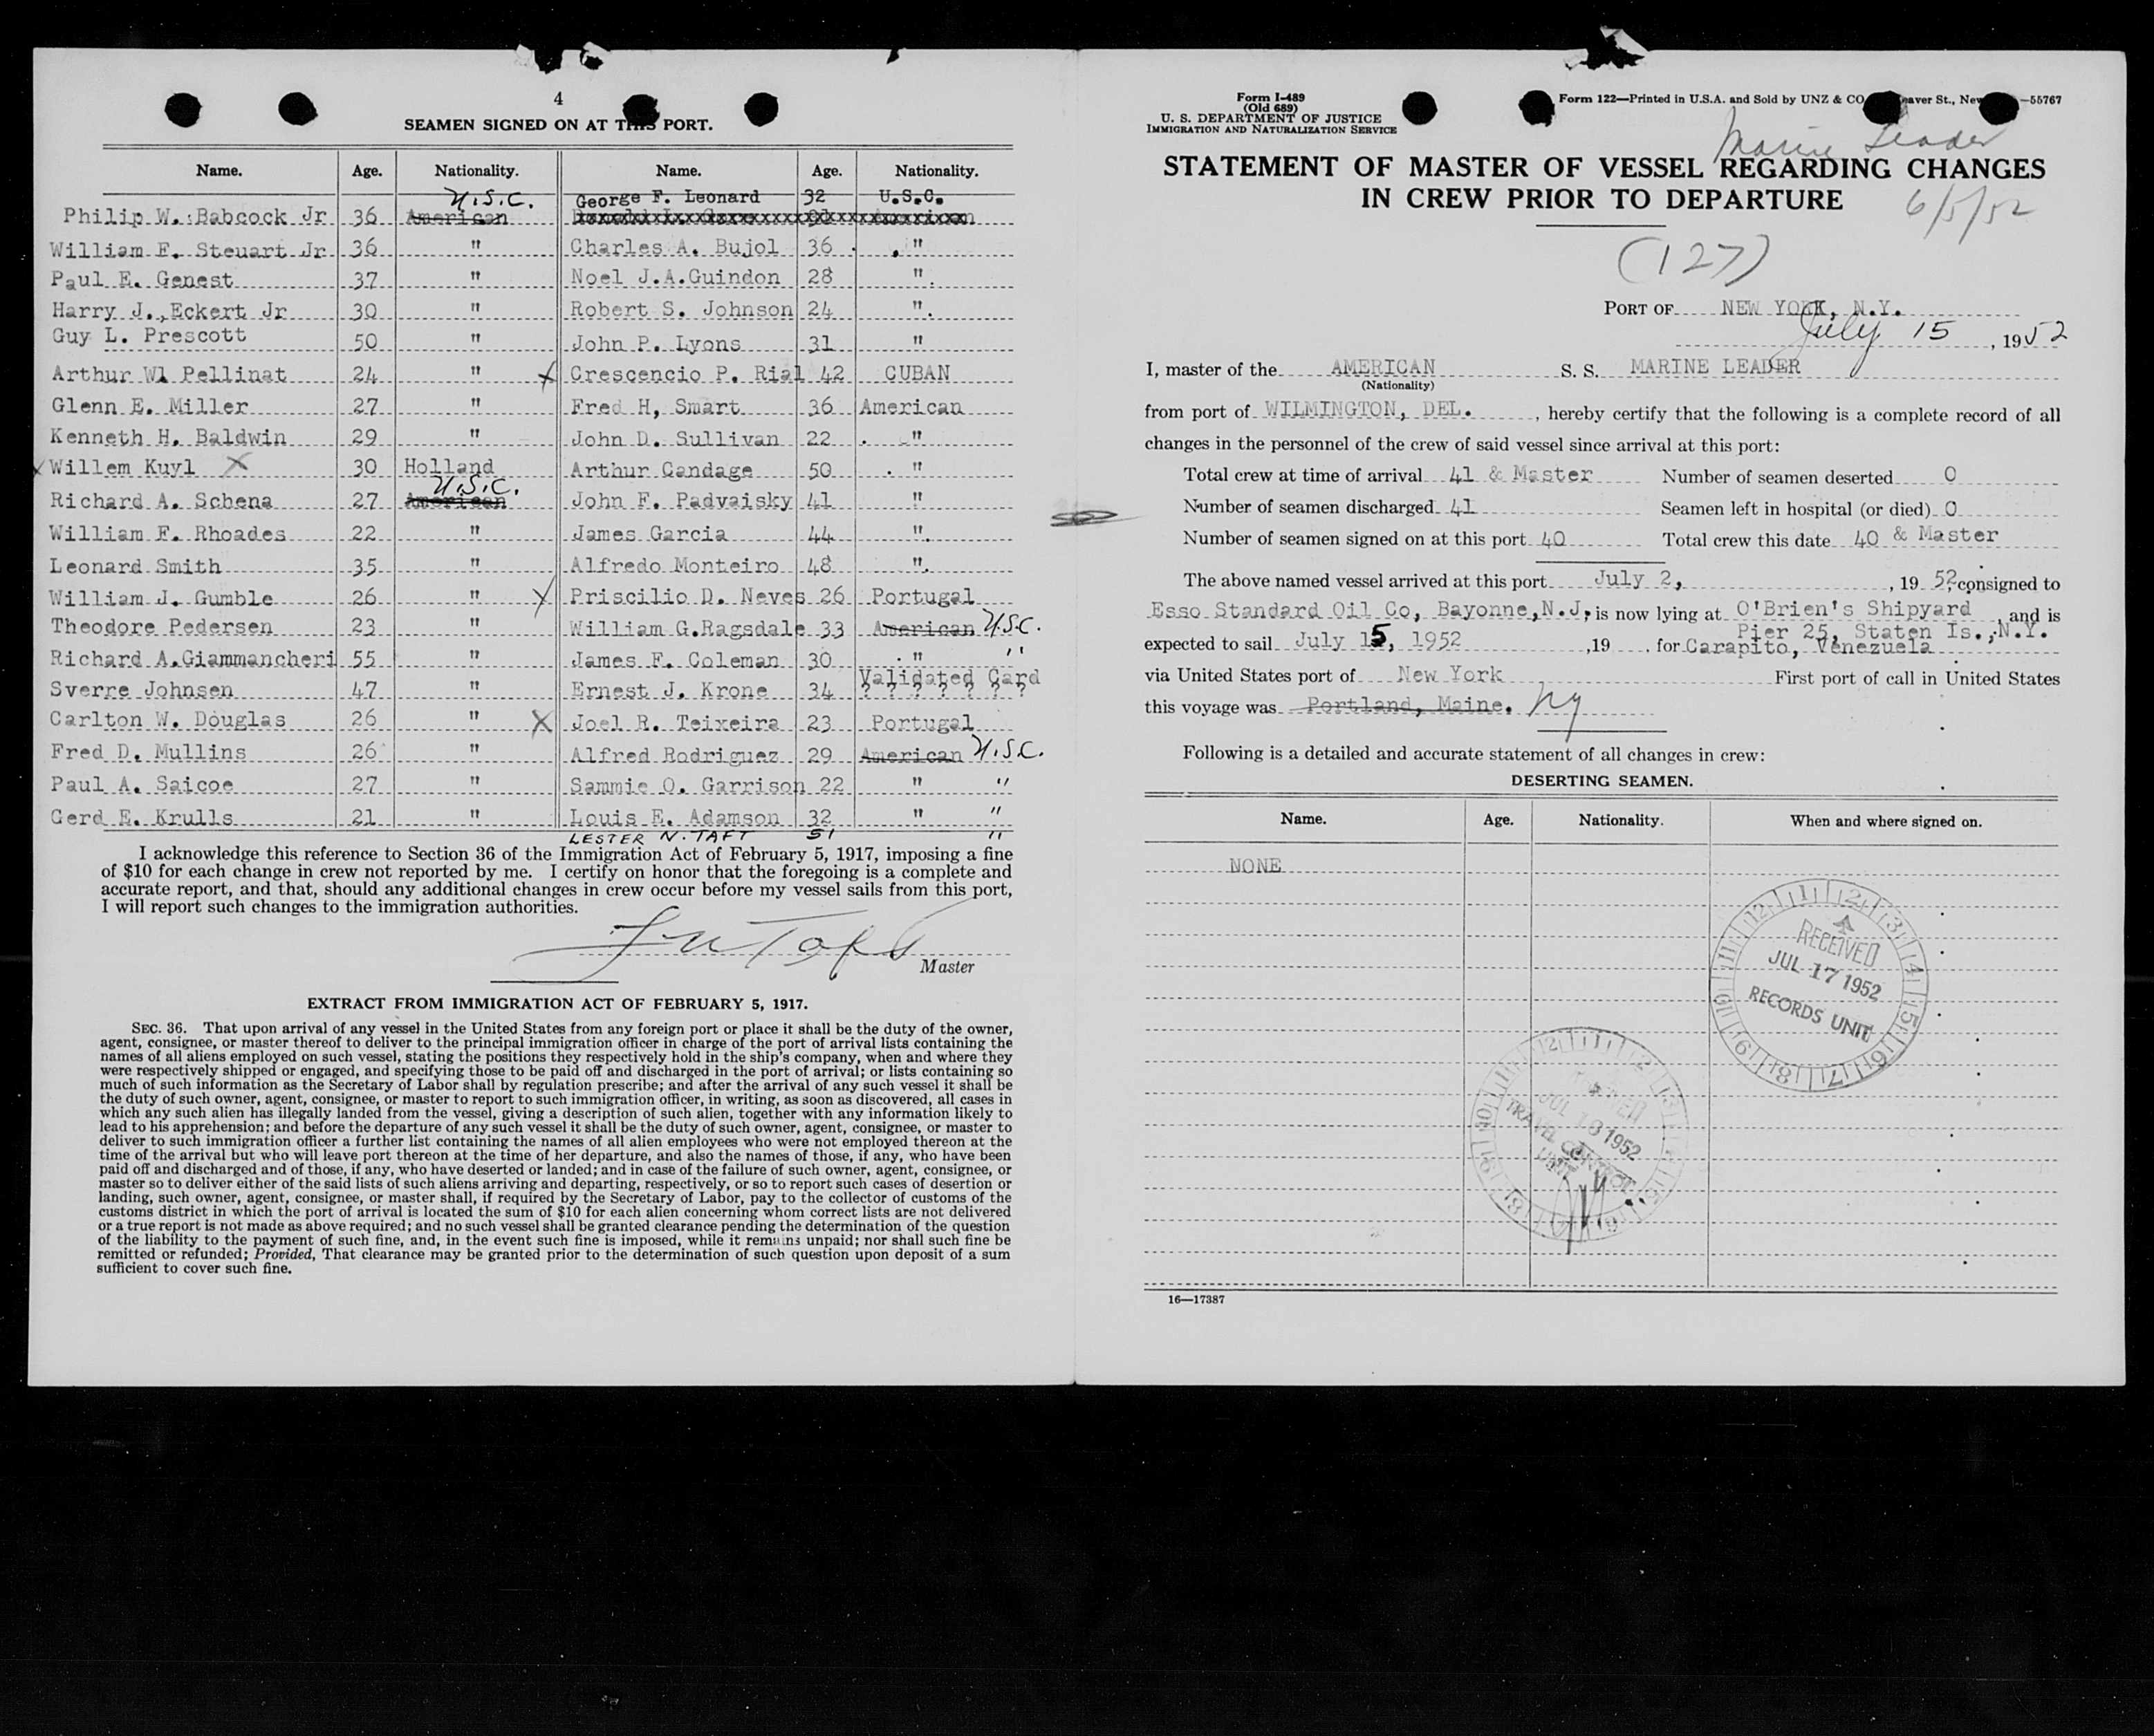 4
SEAMEN SIGNED ON AT THIS PORT.
Name. Age. Nationality. Name. Age. Nationality.
U.S.C. George F. Leonard 32 U.S.C.
Philip W. Babcock Jr 36 American
William E. Steuart Jr 36 " Charles A. Bujol 36 "
Paul E. Genest 37 " Noel J.A.Guindon 28 "
Harry J., Eckert Jr 30 " Robert S. Johnson 24 "
Guy L. Prescott 50 " John P. Lyons 31 "
Arthur Wl Pellinat 24 " X Crescencio P. Rial 42 CUBAN
Glenn E. Miller 27 " Fred H, Smart 36 American
Kenneth H. Baldwin 29 " John D. Sullivan 22 "
X Willem Kuyl X 30 Holland Arthur Candage 50 "
U.S.C.
Richard A. Schena 27 American John F. Padvaisky 41 "
William F. Rhoades 22 " James Garcia 44 "
Leonard Smith 35 " Alfredo Monteiro 48 "
William J. Gumble 26 " X Priscilio D. Neves 26 Portugal
Theodore Pedersen 23 " William G.Ragsdale 33 American U.S.C.
Richard A.Giammancheri 55 " James F. Coleman 30 " "
Validated Card
Sverre Johnsen 47 " Ernest J. Krone 34 ? ? ? ? ? ? ?
Carlton W. Douglas 26 " X Joel R. Teixeira 23 Portugal
Fred D. Mullins 26 " Alfred Rodriguez 29 American U.S.C.
Paul A. Saicoe 27 " Sammie O. Garrison 22 " "
Gerd E. Krulls 21 " Louis E. Adamson 32 " "
LESTER N. TAFT 51 "
I acknowledge this reference to Section 36 of the Immigration Act of February 5, 1917, imposing a fine
of $10 for each change in crew not reported by me. I certify on honor that the foregoing is a complete and
accurate report, and that, should any additional changes in crew occur before my vessel sails from this port,
I will report such changes to the immigration authorities.
Master
EXTRACT FROM IMMIGRATION ACT OF FEBRUARY 5, 1917.
SEC. 36. That upon arrival of any vessel in the United States from any foreign port or place it shall be the duty of the owner,
agent, consignee, or master thereof to deliver to the principal immigration officer in charge of the port of arrival lists containing the
names of all aliens employed on such vessel, stating the positions they respectively hold in the ship's company, when and where they
were respectively shipped or engaged, and specifying those to be paid off and discharged in the port of arrival; or lists containing so
much of such information as the Secretary of Labor shall by regulation prescribe; and after the arrival of any such vessel it shall be
the duty of such owner, agent, consignee, or master to report to such immigration officer, in writing, as soon as discovered, all cases in
which any such alien has illegally landed from the vessel, giving a description of such alien, together with any information likely to
lead to his apprehension; and before the departure of any such vessel it shall be the duty of such owner, agent, consignee, or master to
deliver to such immigration officer a further list containing the names of all alien employees who were not employed thereon at the
time of the arrival but who will leave port thereon at the time of her departure, and also the names of those, if any, who have been
paid off and discharged and of those, if any, who have deserted or landed; and in case of the failure of such owner, agent, consignee, or
master so to deliver either of the said lists of such aliens arriving and departing, respectively, or so to report such cases of desertion or
landing, such owner, agent, consignee, or master shall, if required by the Secretary of Labor, pay to the collector of customs of the
customs district in which the port of arrival is located the sum of $10 for each alien concerning whom correct lists are not delivered
or a true report is not made as above required; and no such vessel shall be granted clearance pending the determination of the question
of the liability to the payment of such fine, and, in the event such fine is imposed, while it remains unpaid; nor shall such fine be
remitted or refunded; Provided, That clearance may be granted prior to the determination of such question upon deposit of a sum
sufficient to cover such fine.
Form I-489
(Old 689)
U. S. DEPARTMENT OF JUSTICE
IMMIGRATION AND NATURALIZATION SERVICE
Form 122—Printed in U.S.A. and Sold by UNZ & CO eaver St., New —55767
Marine Leader
STATEMENT OF MASTER OF VESSEL REGARDING CHANGES
IN CREW PRIOR TO DEPARTURE
6/5/52
(127)
PORT OF NEW YORK, N.Y.
July 15, 1952
I, master of the AMERICAN S. S. MARINE LEADER
(Nationality)
from port of WILMINGTON, DEL., hereby certify that the following is a complete record of all
changes in the personnel of the crew of said vessel since arrival at this port:
Total crew at time of arrival 41 & Master Number of seamen deserted 0
Number of seamen discharged 41 Seamen left in hospital (or died) 0
Number of seamen signed on at this port 40 Total crew this date 40 & Master
The above named vessel arrived at this port July 2, , 19 52, consigned to
Esso Standard Oil Co, Bayonne, N.J, is now lying at O'Brien's Shipyard, and is
Pier 25, Staten Is., N.Y.
expected to sail July 15, 1952 ,19 , for Carapito, Venezuela
via United States port of New York First port of call in United States
this voyage was Portland, Maine. NY
Following is a detailed and accurate statement of all changes in crew:
DESERTING SEAMEN.
Name. Age. Nationality. When and where signed on.
NONE
RECEIVED
JUL 17 1952
RECORDS UNIT
1952
TRAVEL CONTROL
UNIT
16—17387